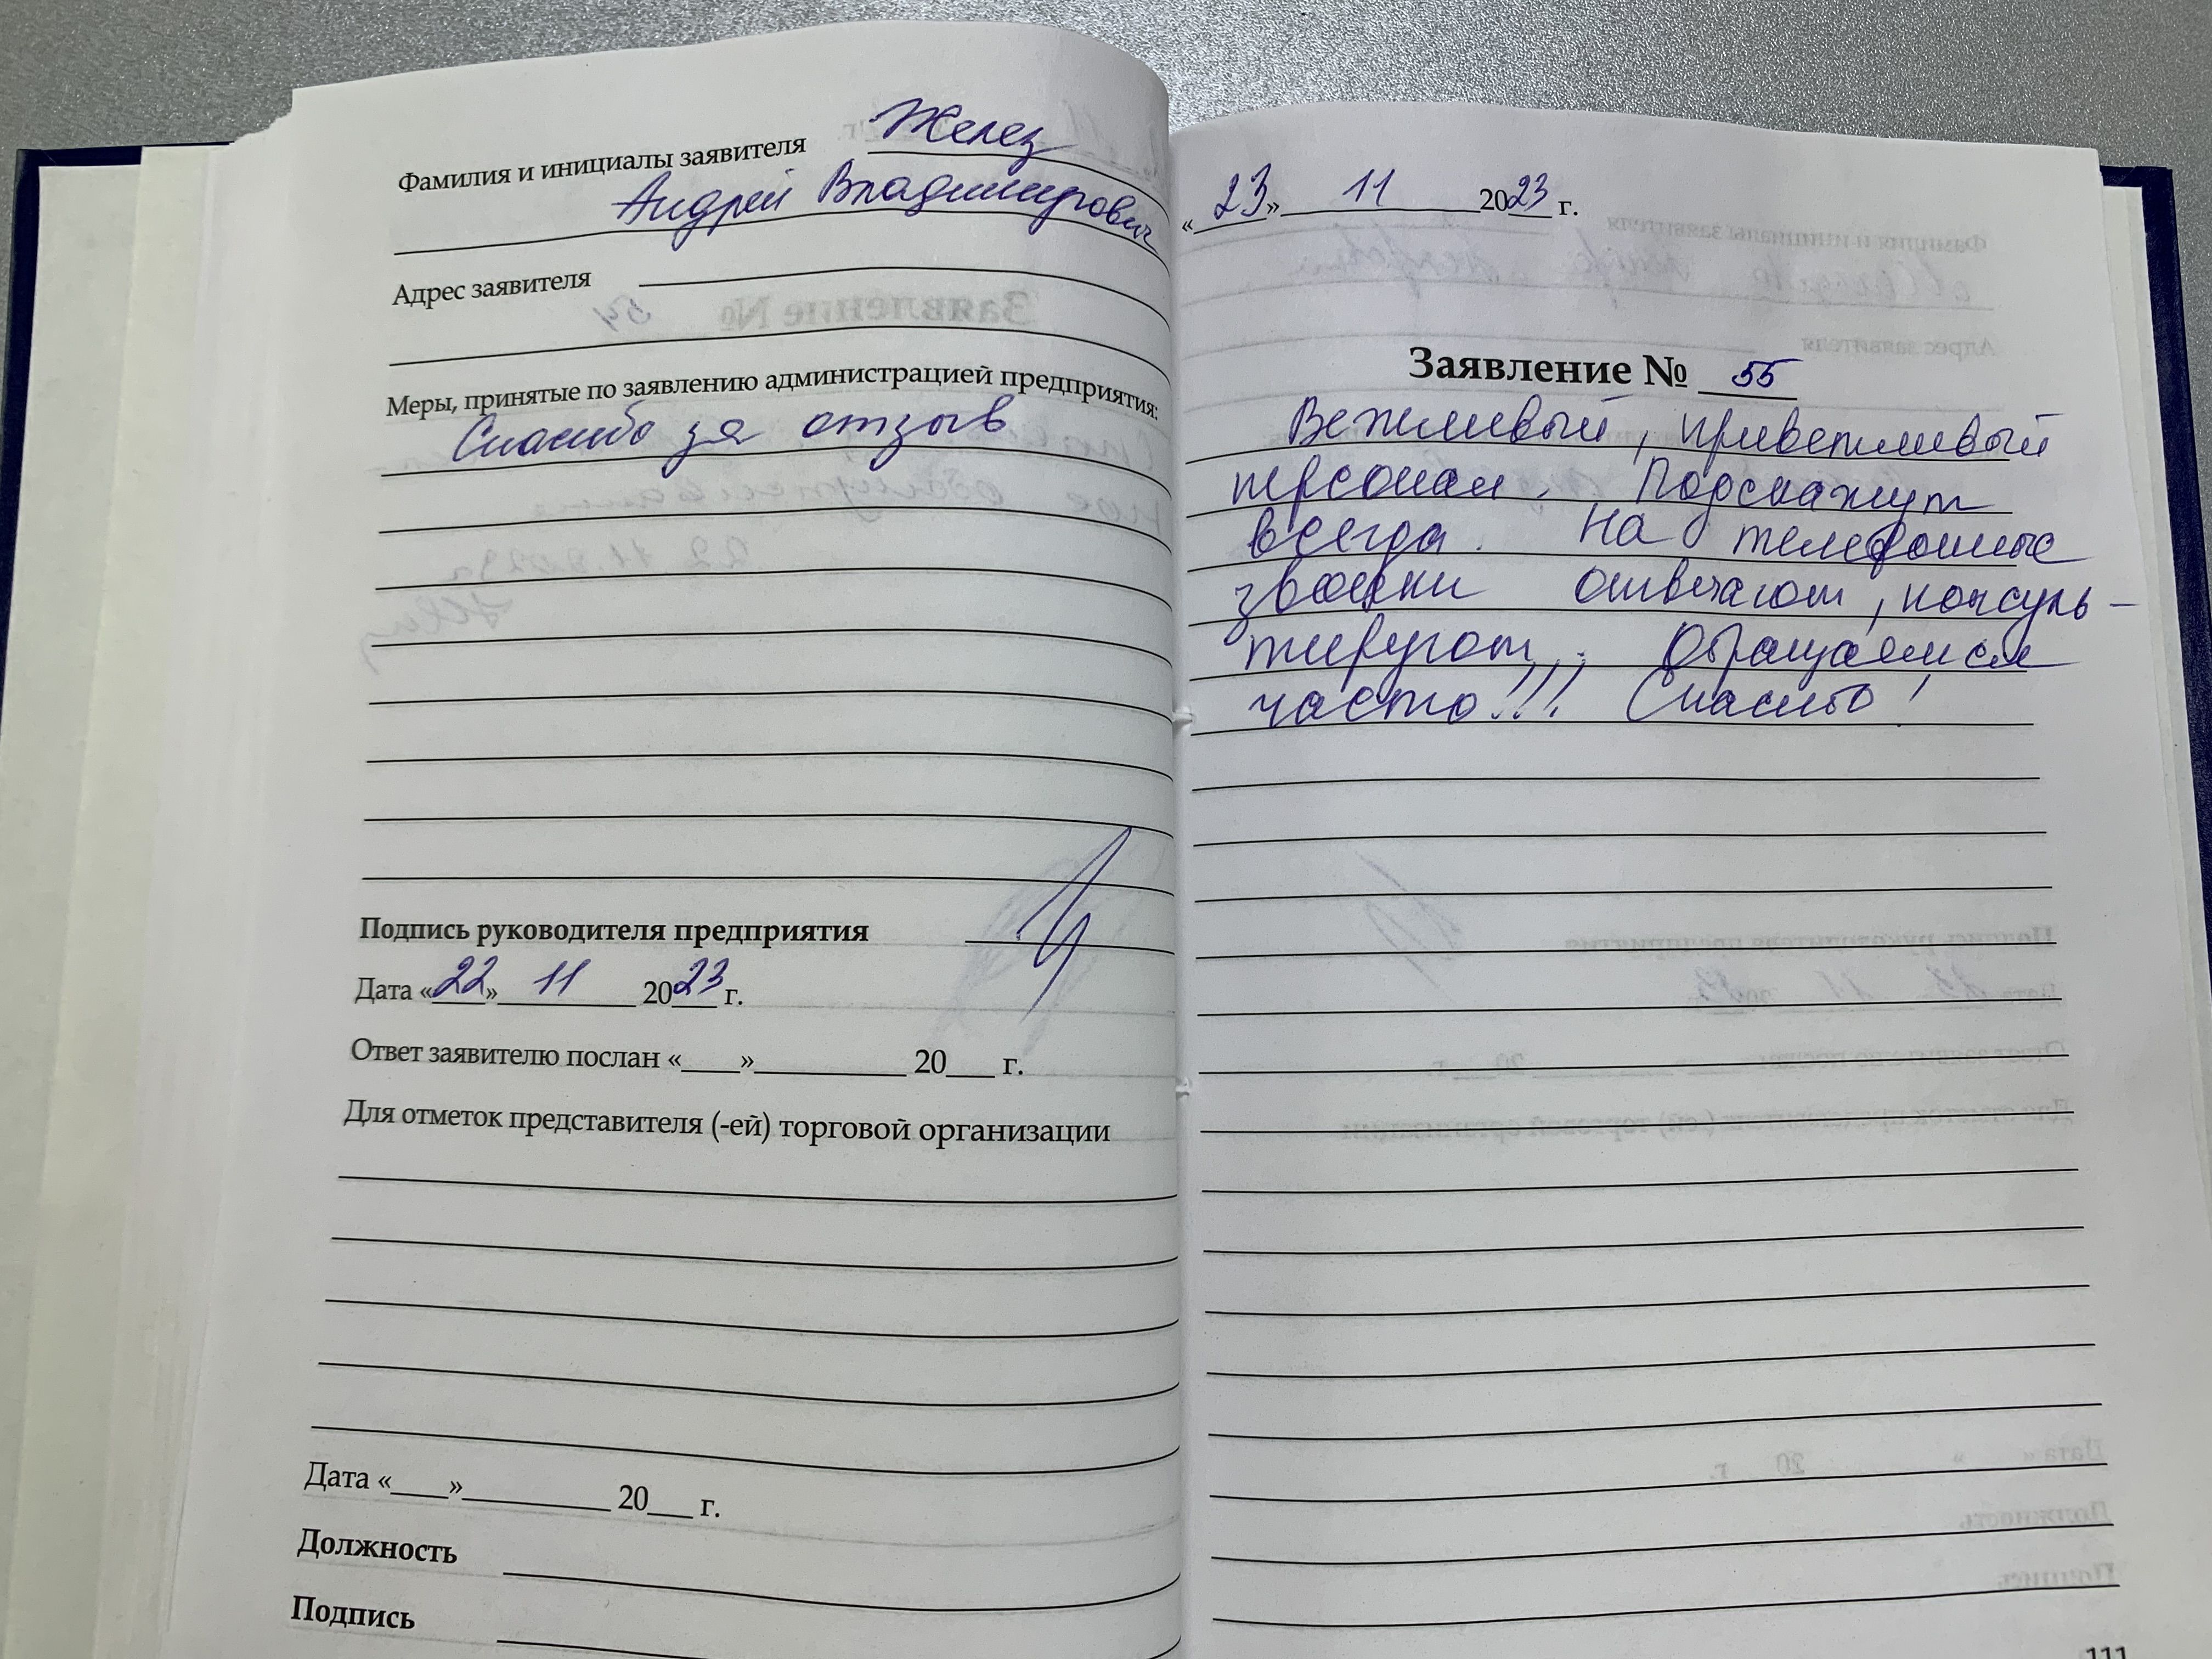 Фамилия и инициалы заявителя Желез
Андрей Владимирович
Адрес заявителя
Меры, принятые по заявлению администрацией предприятия:
Спасибо за отзыв
Подпись руководителя предприятия
Дата «22» 11 2023 г.
Ответ заявителю послан «___»__________ 20___ г.
Для отметок представителя (-ей) торговой организации
Дата «___»__________ 20___ г.
Должность
Подпись
«23» 11 2023 г.
Заявление № 55
Вежливый, приветливый
персонал. Подскажут
всегда. На телефонные
звонки отвечают, консуль-
тируют. Обращаемся
часто!!! Спасибо!
111